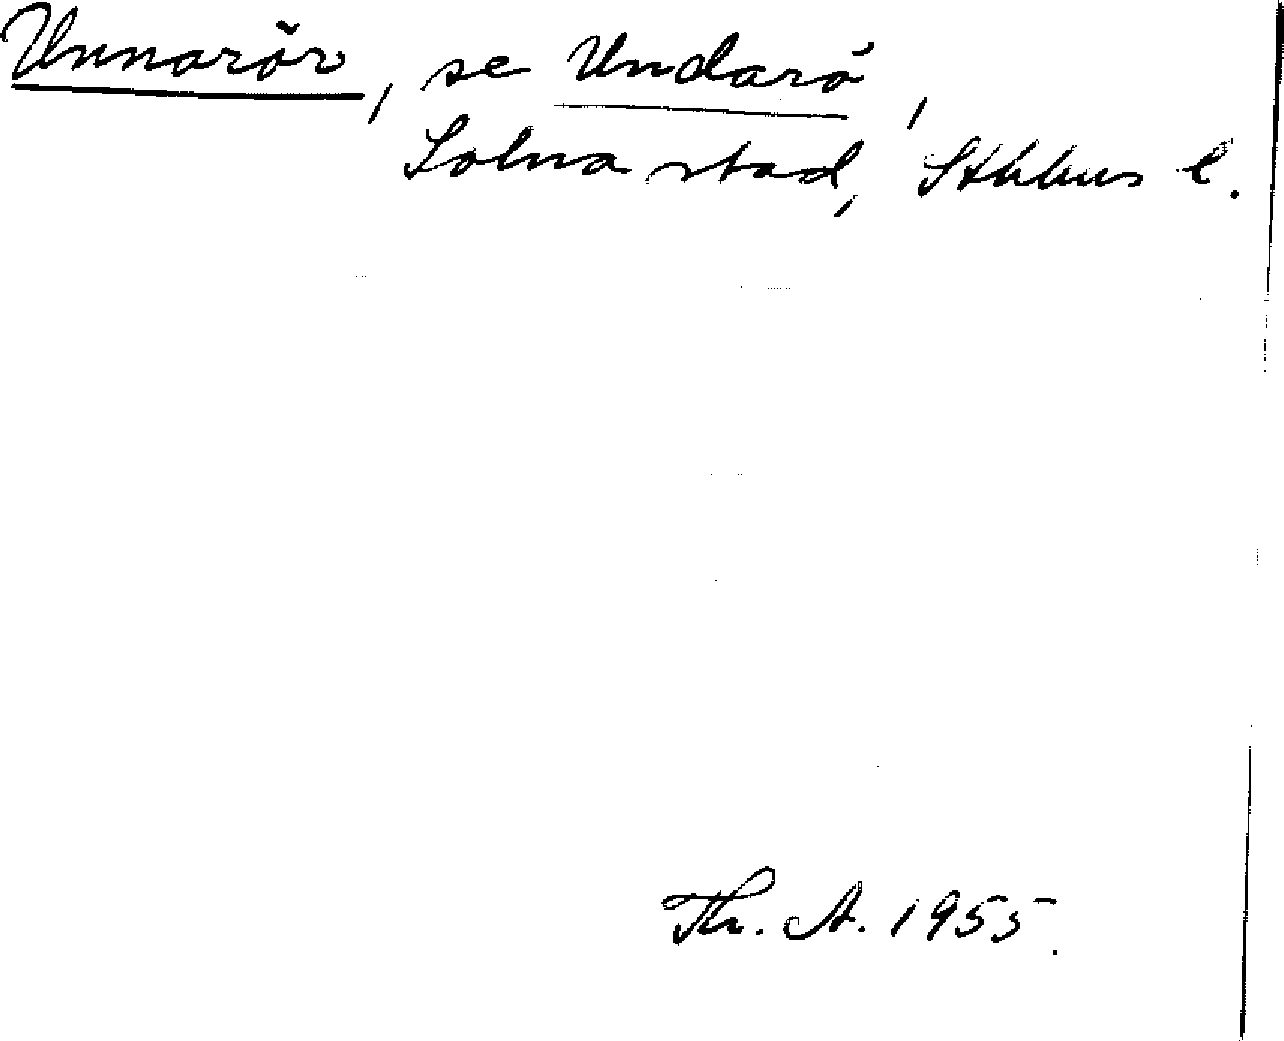 Unnarör, se Undarö,
Solna stad, Sthlms l.
Th. A. 1955.